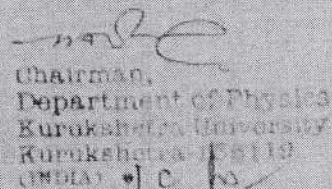 Chairman,
Department of Physics
Kurukshetra University
Kurukshetra-136119
(INDIA)